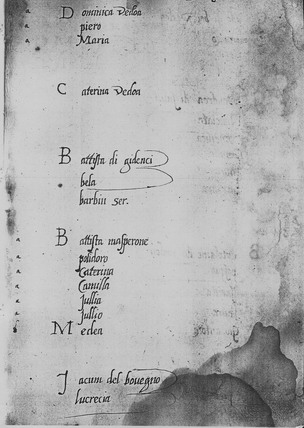 Dominica vedoa
piero
Maria
Caterina vedoa
Battista di gidenci
bela
barbin ser.
Battista masperone
polidoro
Caterina
Camilla
Jullia
Jullio
Medea
Jacum del bouegno
lucrecia